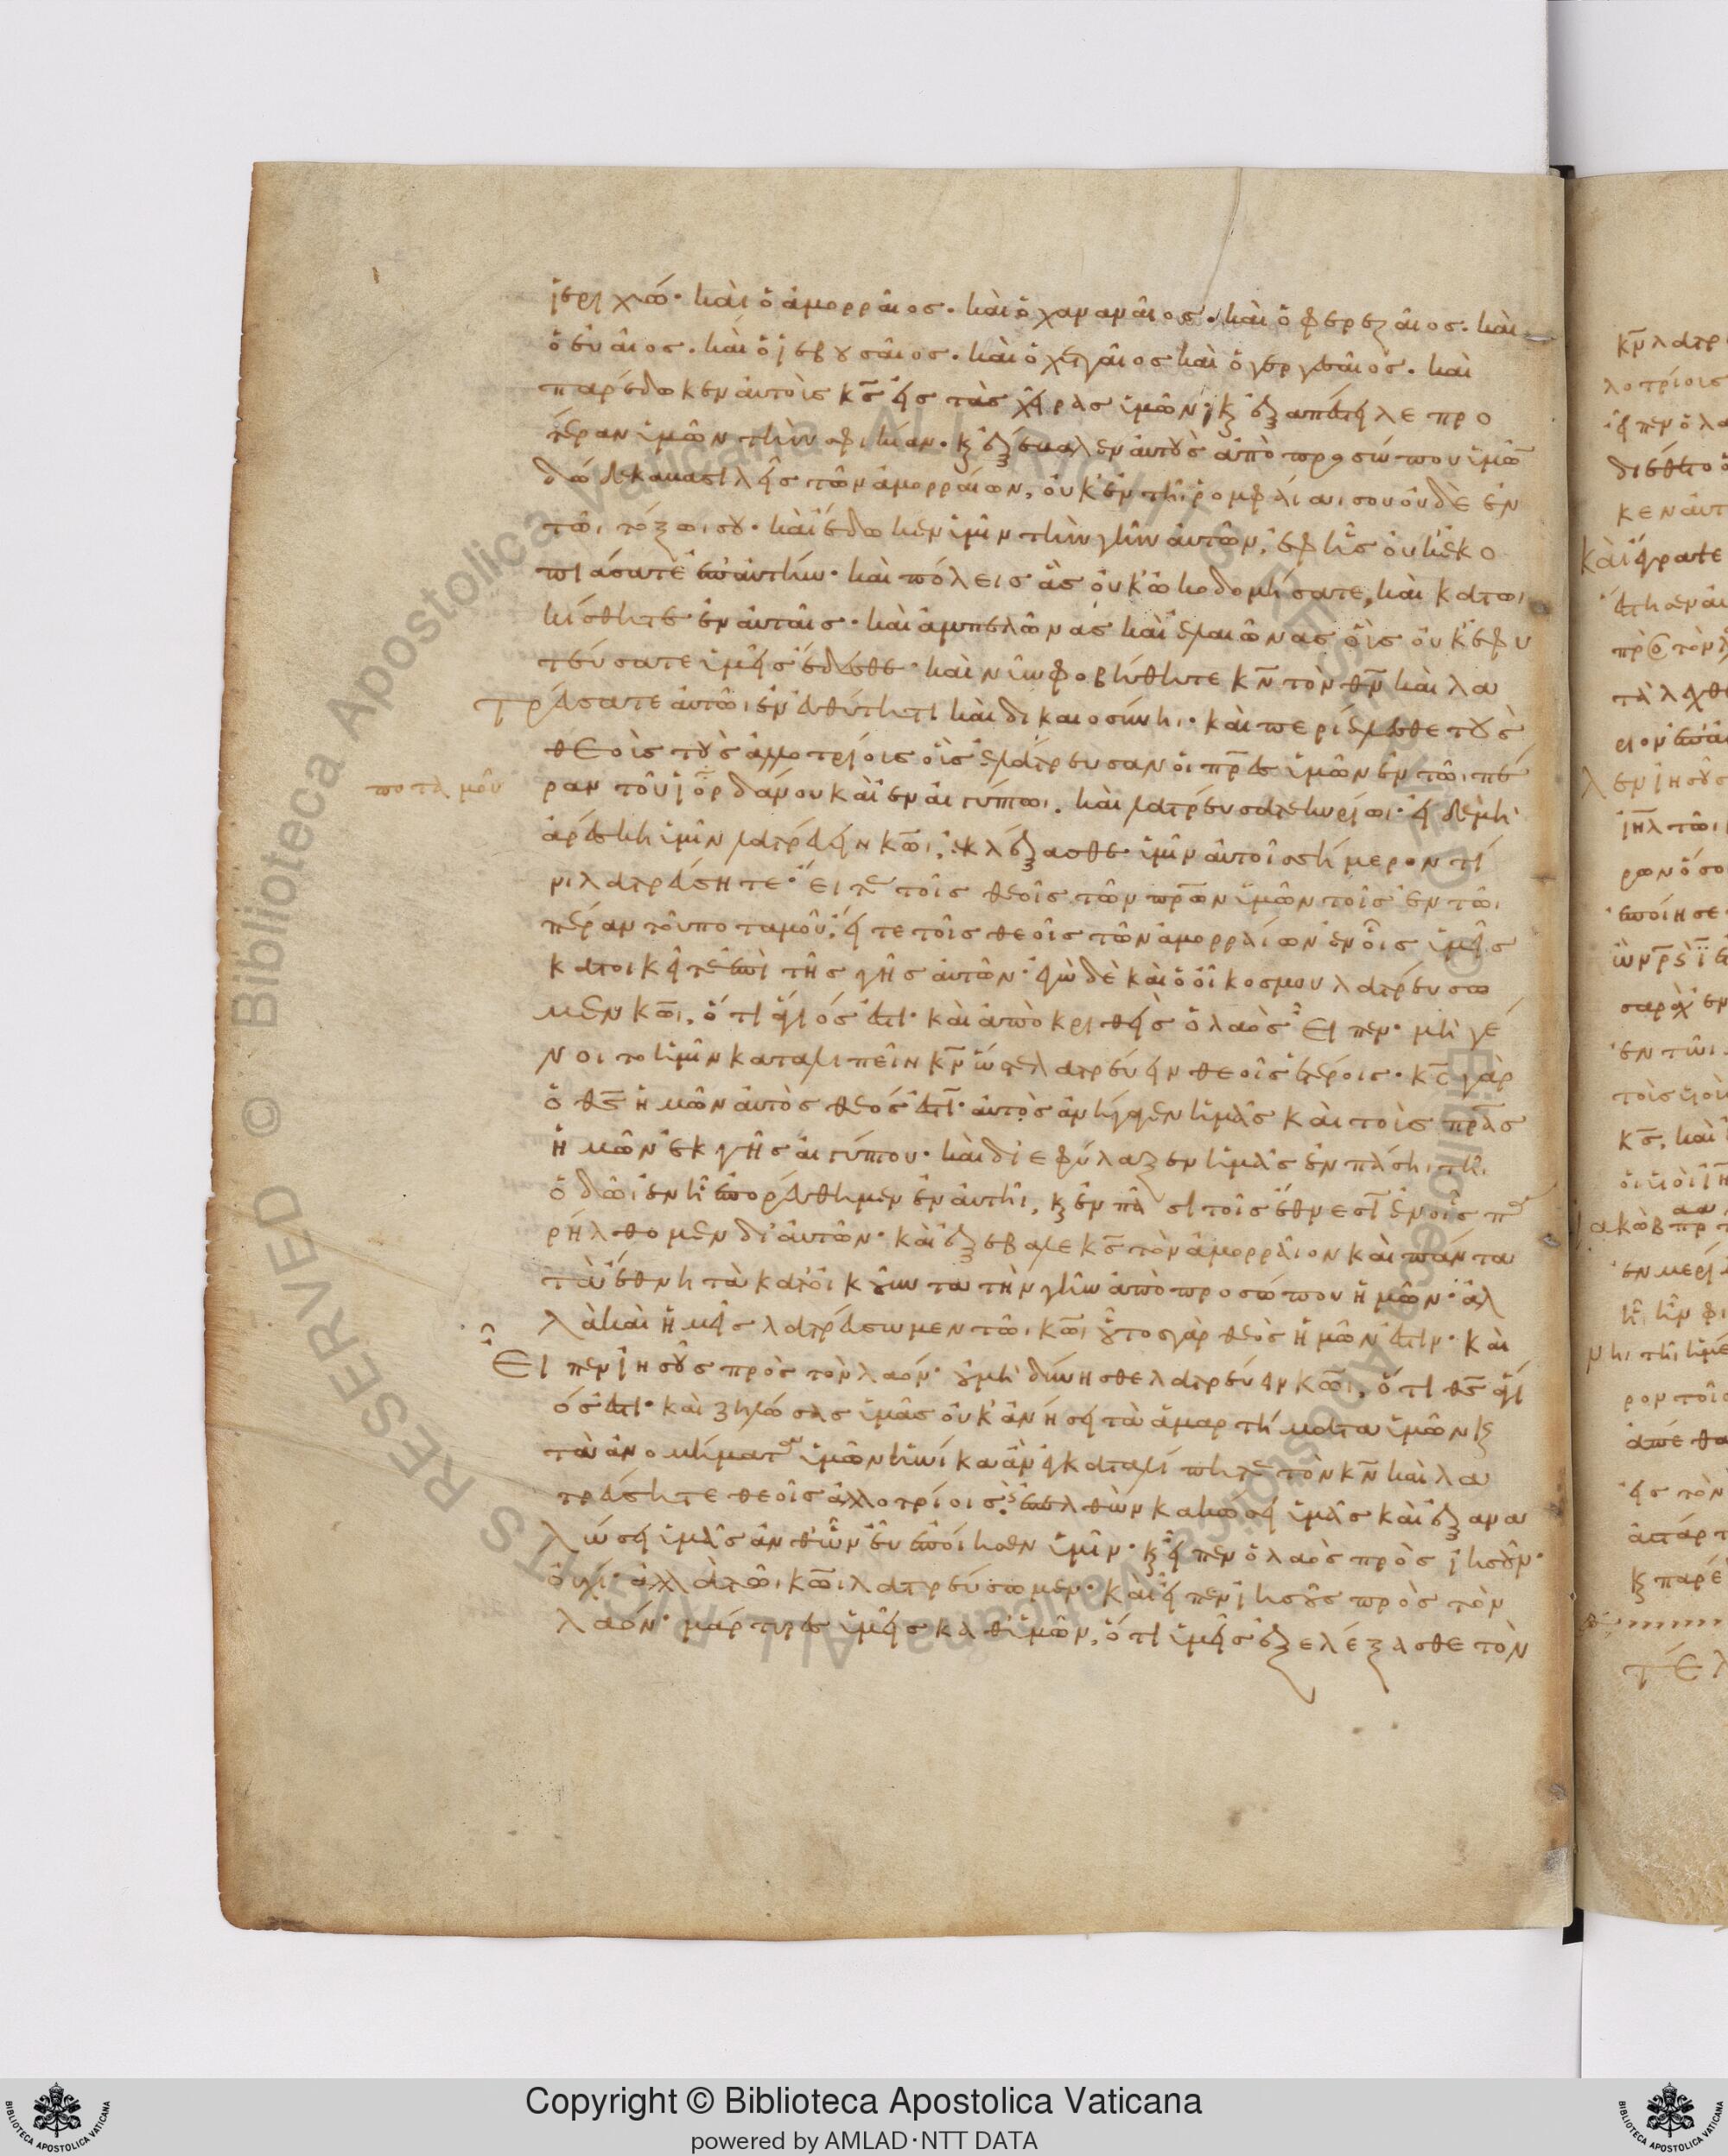 ἱεριχώ· καὶ ὁ ἀμορραῖος· καὶ ὁ χαναναῖος· καὶ ὁ φερεζαῖος· καὶ
ὁ εὑαῖος· καὶ ὁ ἰεβουσαῖος· καὶ ὁ χετταῖος καὶ ὁ γεργεσαῖος· καὶ
παρέδωκεν αὐτοὺς κ̅ς̅ εἰς τὰς χεῖρας ὑμῶν· κ̀ ἐξαπέστειλε προ
τέραν ὑμῶν τὴν σφικίαν· κ̀ ἐξέβαλεν αὐτοὺς ἀπὸ προσώπου ὑμῶ̅
δώδεκα βασιλεῖς τῶν ἀμορραίων, οὐκ ἐν τῆι ῥομφαίαι σου οὐδὲ ἐν
τῶι τόξωι σου· καὶ ἔδωκεν ὑμῖν τὴν γῆν αὐτῶν, ἐφ ἧς οὐκ ἐκο
πιάσατε ἐπ αὐτήν· καὶ πόλεις ἃς οὐκ ὠκοδομήσατε, καὶ κατωι
κίσθητε ἐν αὐταῖς· καὶ ἀμπελῶνας καὶ ἐλαιῶνας οἷς οὐκ ἐφυ
τεύσατε ὑμεῖς ἔδεσθε· καὶ νῦν φοβήθητε κ̅ν̅ τὸν θ̅ν̅ καὶ λα
τρεύσατε αὐτῶι ἐν εὐθύτητι καὶ δικαιοσύνηι· καὶ περιέλεσθε τοὺς
θεοὺς τοὺς ἀλλοτρίους οἷς ἐλάτρευσαν οἱ π̅ρ̅ες ὑμῶν ἐν τῶι πέ
ποταμοῦ
ραν τοῦ ἰορδάνου καὶ ἐν αἰγύπτωι. καὶ λατρεύσατε κυρίωι· εἰ δὲ μὴ
ἀρέσκη ὑμῖν λατρεύειν κ̅ω̅ι, ἐκλέξασθε ὑμῖν αὐτοῖς σήμερον τί
νι λατρεύσητε· εἴτε τοῖς θεοῖς τῶν π̅ρ̅ων ὑμῶν τοῖς ἐν τῶι
πέραν τοῦ ποταμοῦ· εἴτε τοῖς θεοῖς τῶν ἀμορραίων ἐν οἷς ὑμεῖς
κατοικεῖτε ἐπὶ τῆς γῆς αὐτῶν· ἐγὼ δὲ καὶ ὁ οἶκος μου λατρεύσω
μεν κ̅ω̅ι, ὅτι ἅγιός ἐστι· καὶ ἀποκριθεὶς ὁ λαὸς εἶπεν· μὴ γέ
νοιτο ἡμῖν καταλιπεῖν κ̅ν̅ ὥστε λατρεύειν θεοῖς ἑτέροις· κ̅ς̅ γὰρ
ὁ θ̅ς̅ ἡμῶν αὐτὸς θεός ἐστι· αὐτὸς ἀνήγαγεν ἡμᾶς καὶ τοὺς π̅ρ̅ας
ἡμῶν ἐκ γῆς αἰγύπτου· καὶ διεφύλαξεν ἡμᾶς ἐν πάσηι τῆι
ὁδῶι ἐν ἧι ἐπορεύθημεν ἐν αὐτῆι, κ̀ ἐν πᾶσι τοῖς ἔθνεσι ἐν οἷς πα
ρήλθομεν δι αὐτῶν· καὶ ἐξέβαλε κ̅ς̅ τὸν ἀμορραῖον καὶ πάντα
τὰ ἔθνη τὰ κατοικοῦντα τὴν γῆν ἀπὸ προσώπου ἡμῶν· ἀλ
λὰ καὶ ἡμεῖς λατρεύσωμεν τῶι κ̅ω̅ι οὗτος γὰρ θεὸς ἡμῶν ἐστιν· καὶ
εἶπεν ἰησοῦς πρὸς τὸν λαόν· οὐ μὴ δύνησθε λατρεύειν κ̅ω̅ι, ὅτι θ̅ς̅ ἅγι
ός ἐστι· καὶ ζηλώσας ὑμᾶς οὐκ ἀνήσει τὰ ἁμαρτήματα ὑμῶν κ̀
τὰ ἀνομήματα ὑμῶν ἡνίκα ἂν ἐγκαταλίπητε τὸν κ̅ν̅ καὶ λα
τρεύσητε θεοῖς ἀλλοτρίοις· ἐπελθὼν κακώσει ὑμᾶς καὶ ἐξανα
λώσει ὑμᾶς ἀνθ ὧν εὖ ἐποίησεν ὑμῖν· κ̀ εἶπεν ὁ λαὸς πρὸς ἰησοῦν·
οὐχί· ἀλλὰ τῶι κ̅ω̅ι λατρεύσωμεν· καὶ εἶπεν ἰησοῦς πρὸς τὸν
λαόν· μάρτυρες ὑμεῖς καθ ὑμῶν, ὅτι ὑμεῖς ἐξελέξασθε τὸν
Copyright © Biblioteca Apostolica Vaticana
powered by AMLAD·NTT DATA